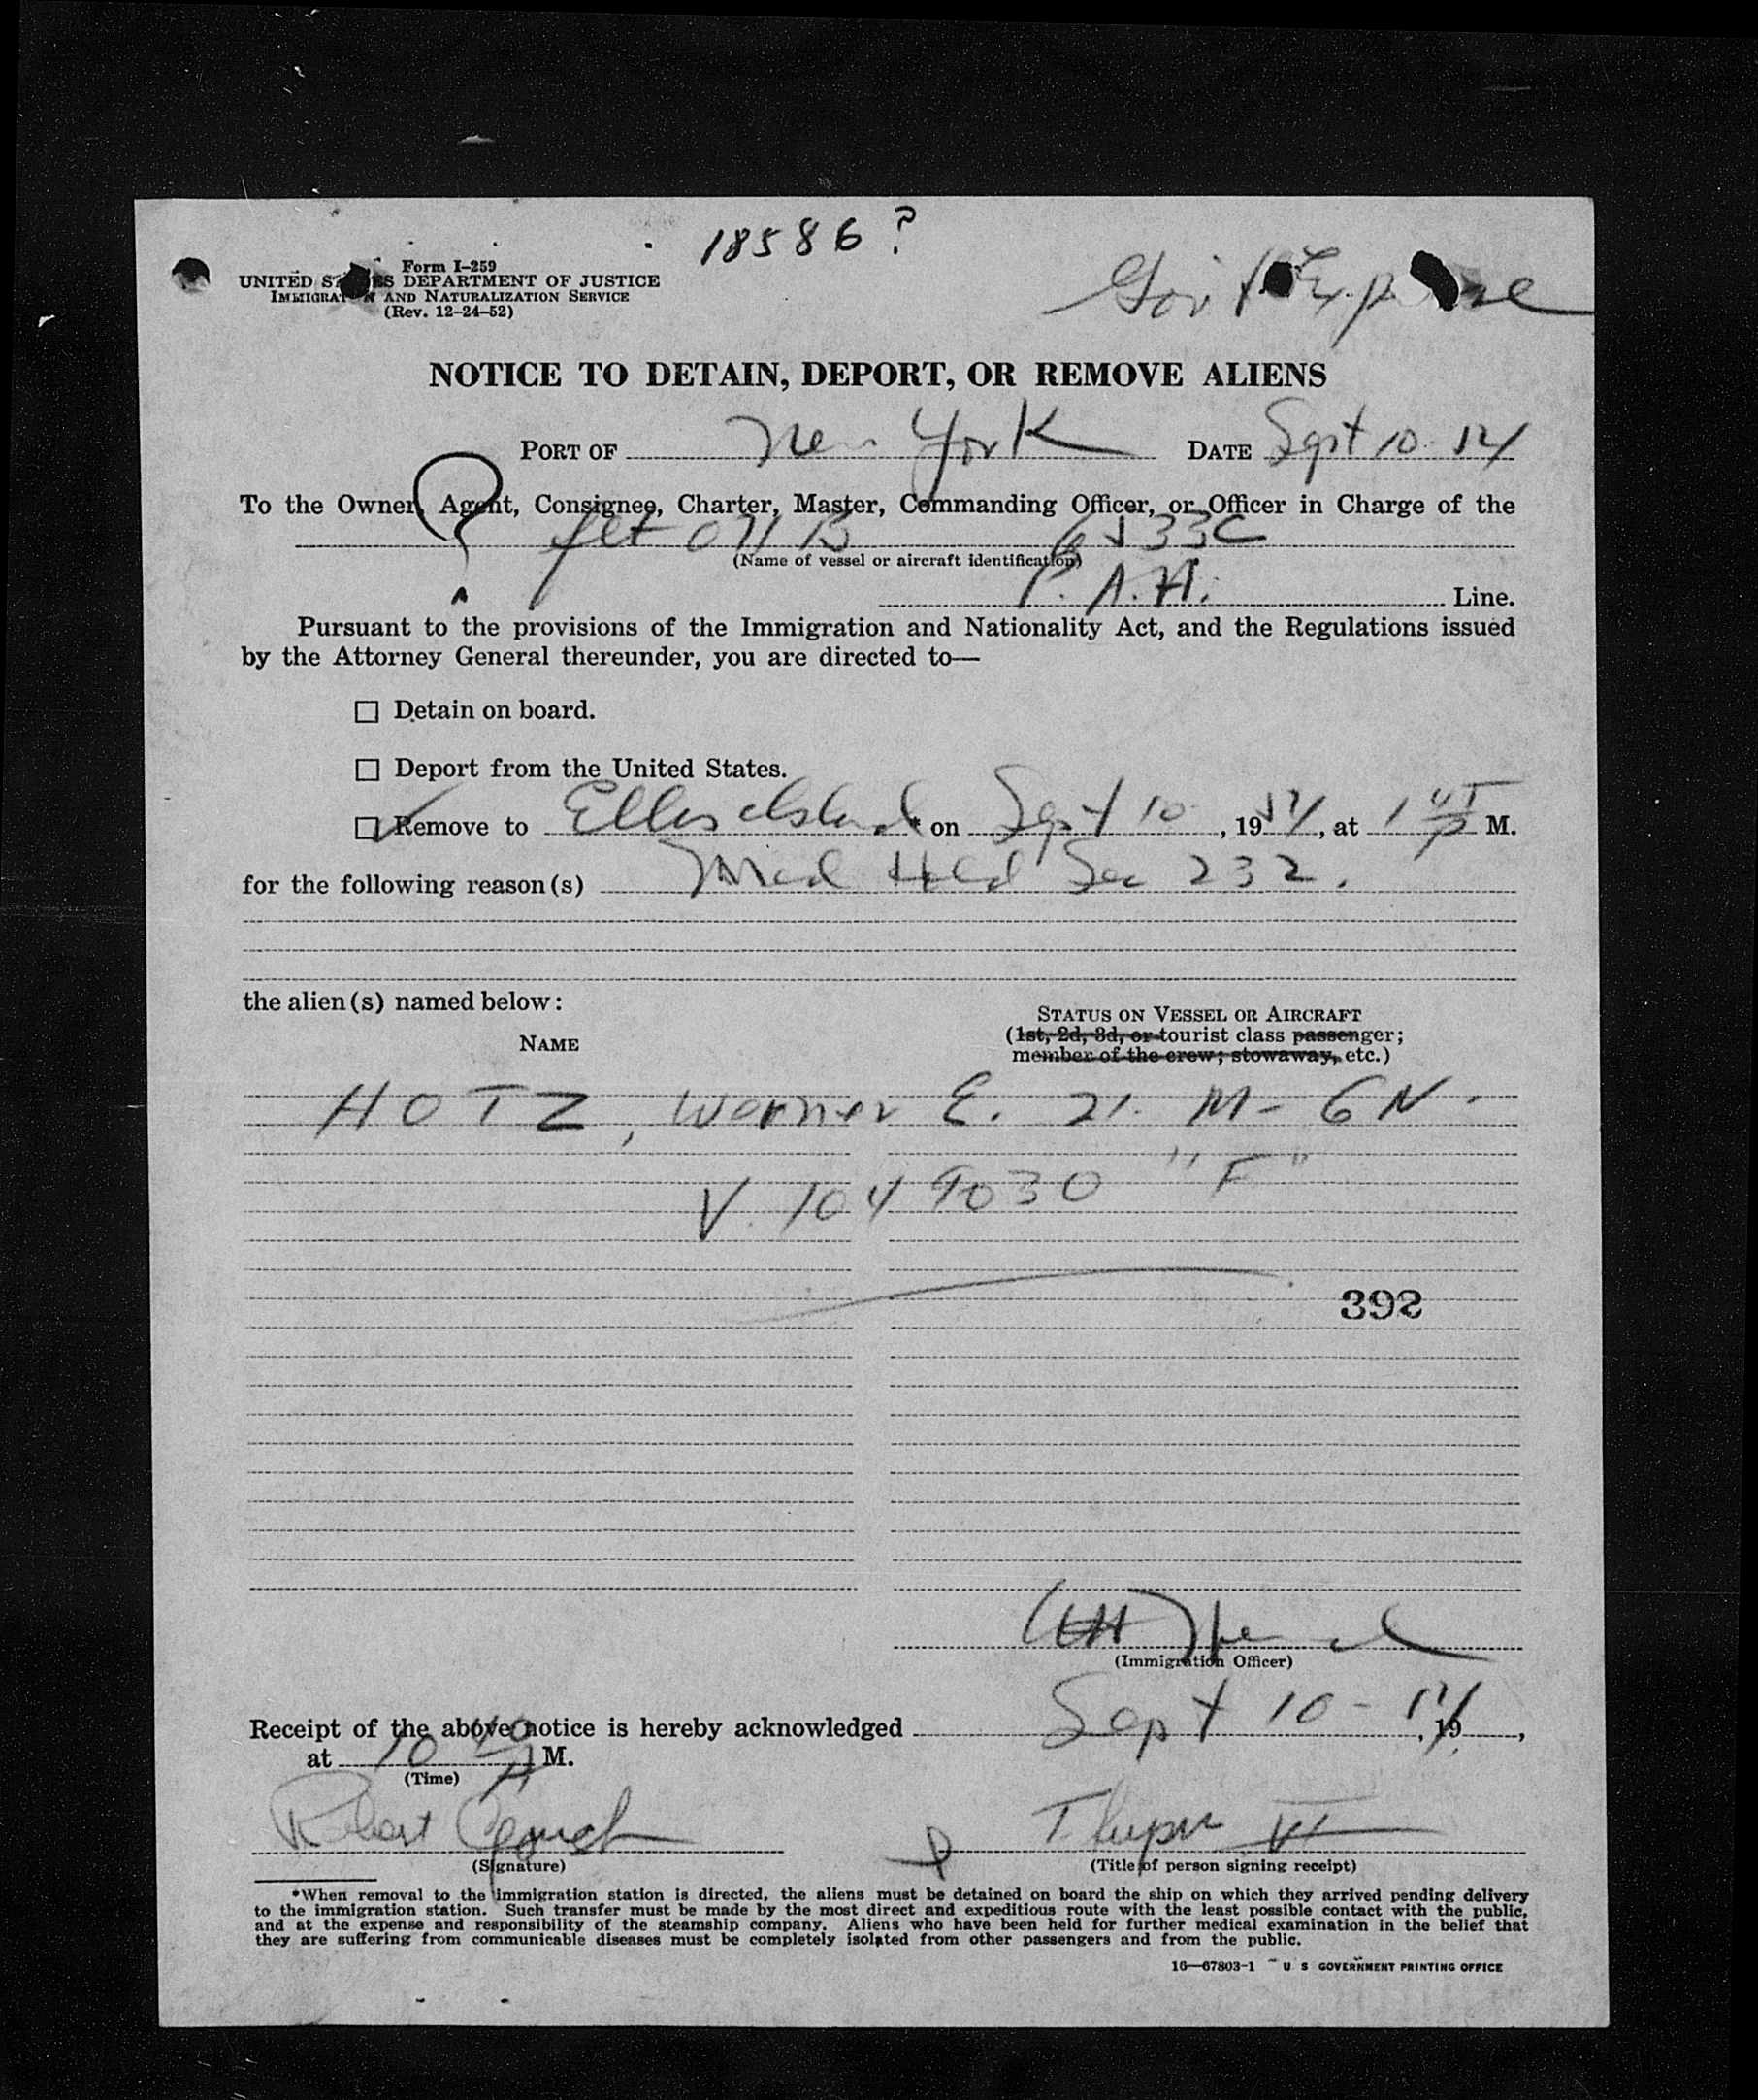 18586 ?
Form I-259
UNITED STATES DEPARTMENT OF JUSTICE
IMMIGRATION AND NATURALIZATION SERVICE
(Rev. 12-24-52)
Gov't Expense
NOTICE TO DETAIN, DEPORT, OR REMOVE ALIENS
PORT OF New York DATE Sept 10 54
To the Owner, Agent, Consignee, Charter, Master, Commanding Officer, or Officer in Charge of the
?
flt 071 B 6533C
(Name of vessel or aircraft identification)
P.A.A. Line.
Pursuant to the provisions of the Immigration and Nationality Act, and the Regulations issued
by the Attorney General thereunder, you are directed to—
Detain on board.
Deport from the United States.
Remove to Ellis Island * on Sept 10, 1954, at 1 45 P M.
for the following reason(s) Med Held Sec 232.
the alien(s) named below:
STATUS ON VESSEL OR AIRCRAFT
NAME
(1st, 2d, 3d, or tourist class passenger;
member of the crew; stowaway, etc.)
HOTZ, Werner E. 21. M- GN.
V. 1049030 "F"
392
(Immigration Officer)
Receipt of the above notice is hereby acknowledged Sept 10 - 54, 19 ,
at 10 40 A M.
(Time)
Robert
(Signature)
(Title of person signing receipt)
*When removal to the immigration station is directed, the aliens must be detained on board the ship on which they arrived pending delivery
to the immigration station. Such transfer must be made by the most direct and expeditious route with the least possible contact with the public,
and at the expense and responsibility of the steamship company. Aliens who have been held for further medical examination in the belief that
they are suffering from communicable diseases must be completely isolated from other passengers and from the public.
16—67803-1 U S GOVERNMENT PRINTING OFFICE